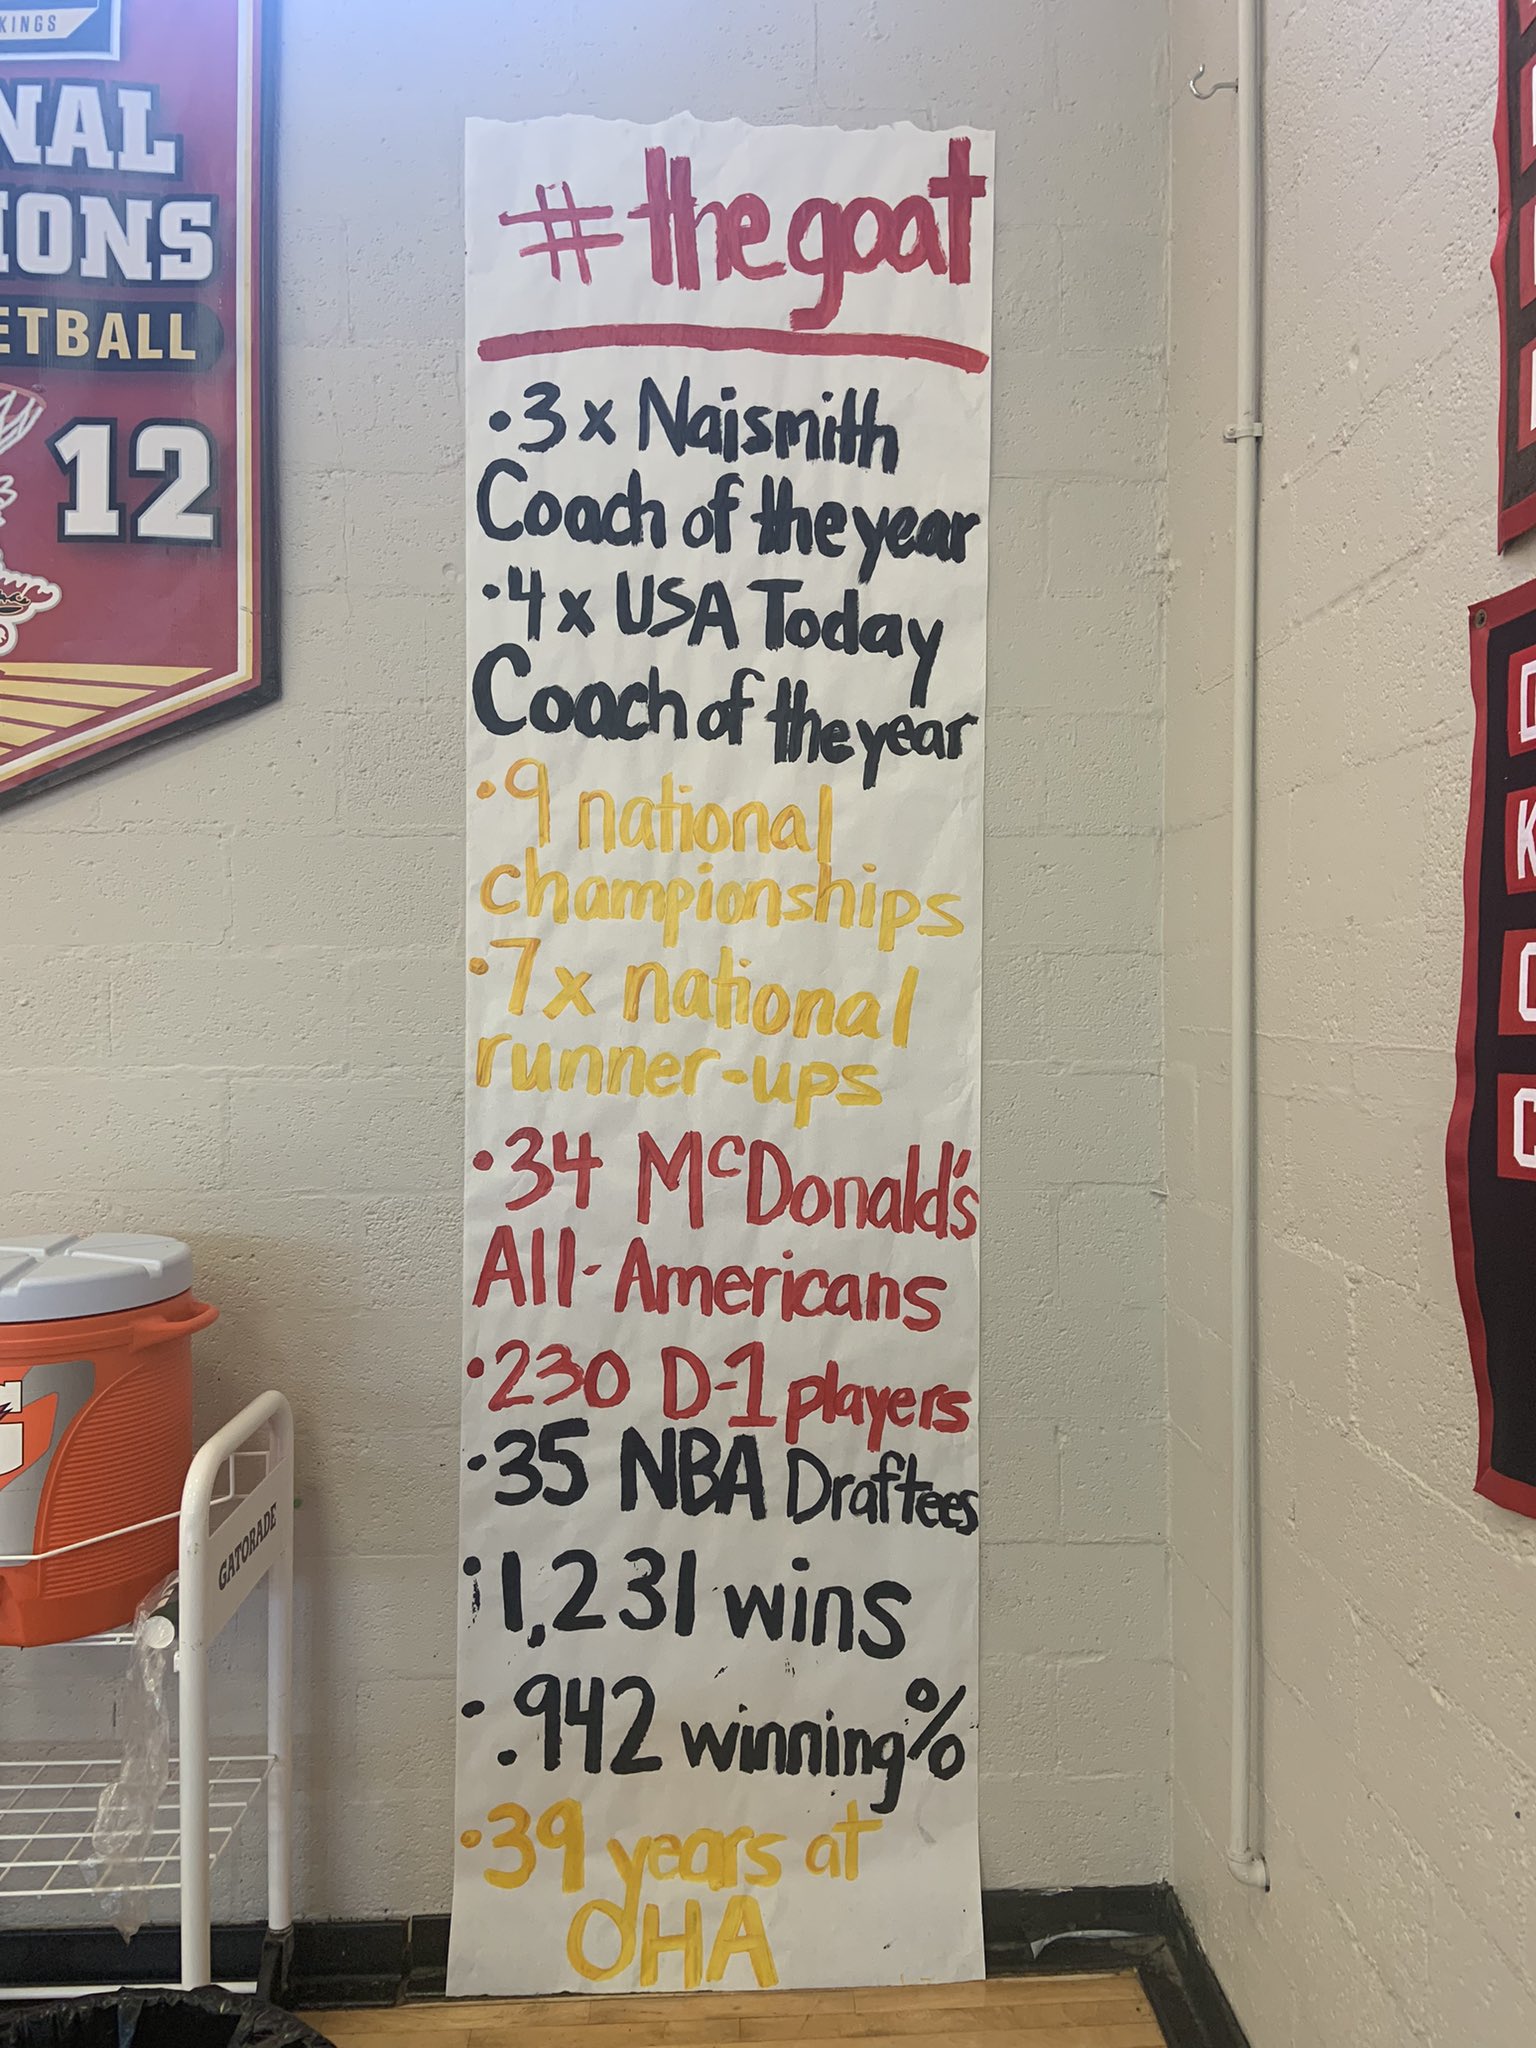 KINGS
NAL
IONS
ETBALL
12
#thegoat
•3x Naismith
Coach of the year
•4x USA Today
Coach of the year
•9 national
championships
•7x national
runner-ups
•34 McDonald's
All-Americans
•230 D-1 players
•35 NBA Draftees
•1,231 wins
•.942 winning%
•39 years at
OHA
GATORADE
K